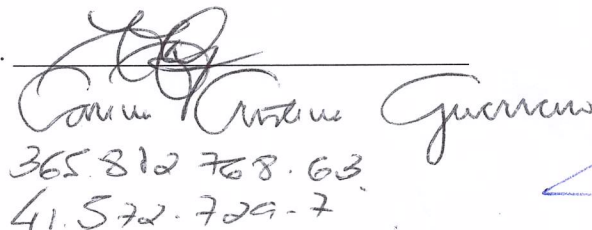 Carina Cristina Guerrero
365.812 768.63
41.572.729-7